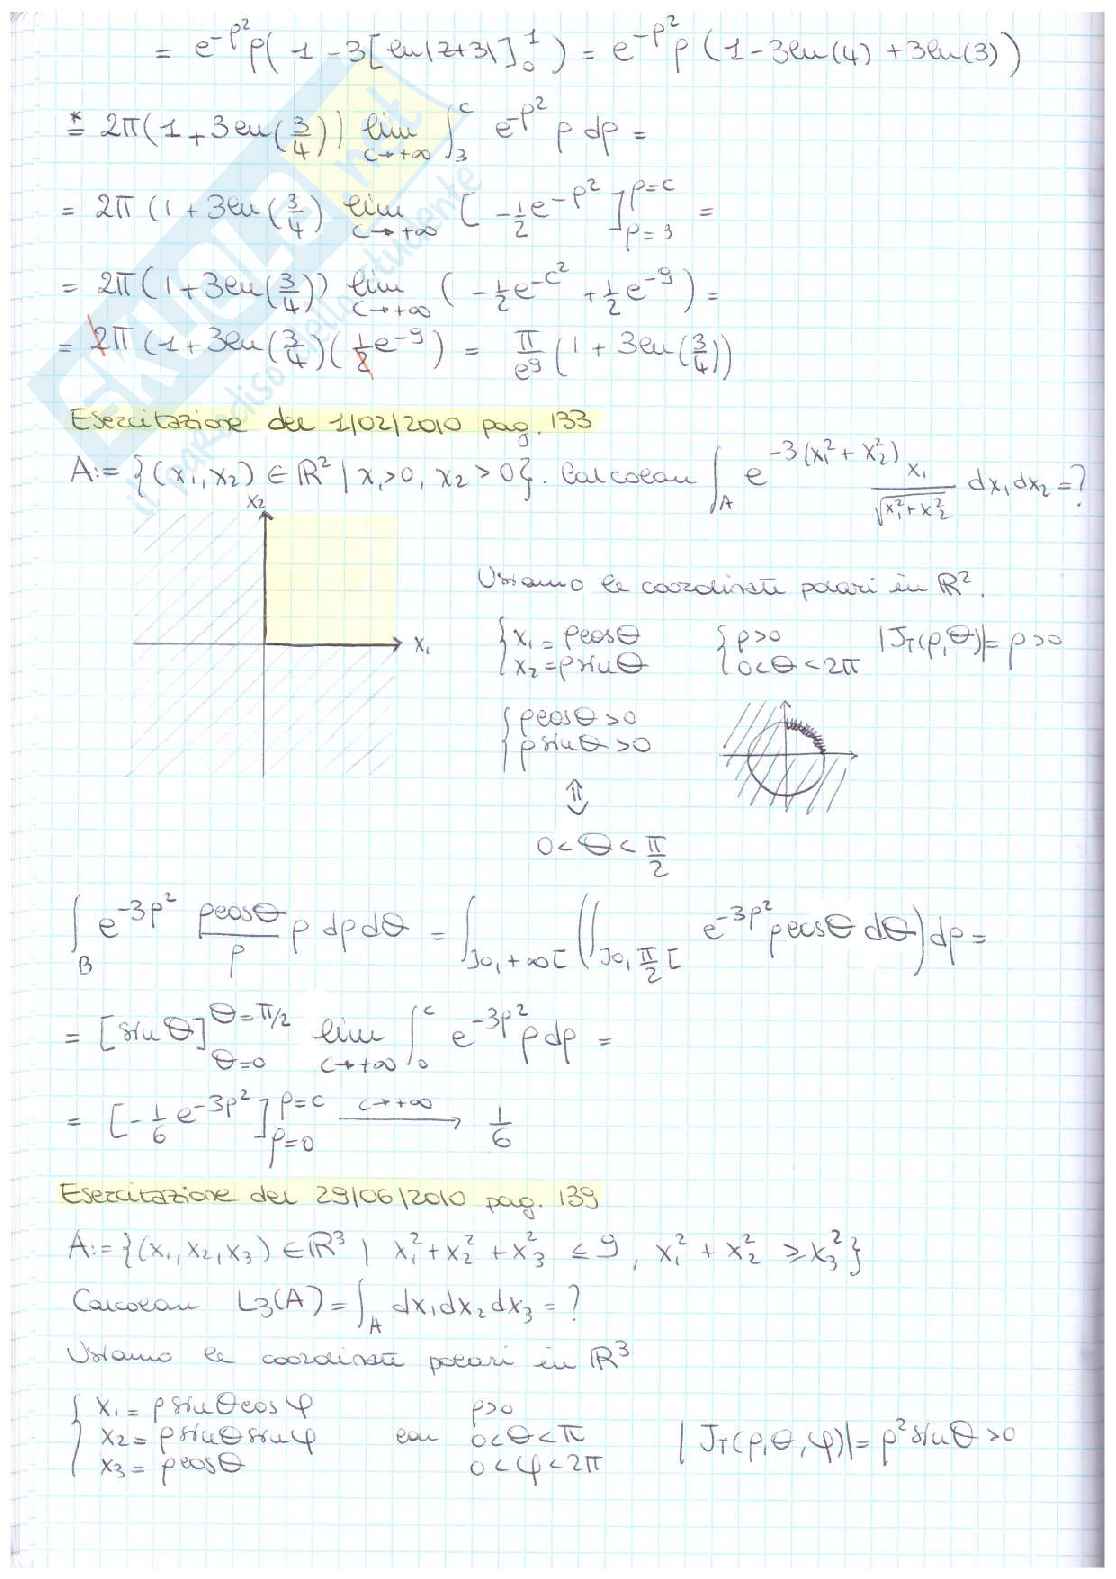 = e^{-ρ²} ρ (1 - 3[ln|z+3|]₀¹) = e^{-ρ²} ρ (1 - 3ln(4) + 3ln(3))
*= 2π(1 + 3ln(3/4)) lim_{c→+∞} ∫₃^c e^{-ρ²} ρ dρ =
= 2π (1 + 3ln(3/4) lim_{c→+∞} [-1/2 e^{-ρ²}]_{ρ=3}^{ρ=c} =
= 2π(1 + 3ln(3/4)) lim_{c→+∞} (-1/2 e^{-c²} + 1/2 e^{-9}) =
= 2π (1 + 3ln(3/4)(1/2 e^{-9}) = π/e⁹ (1 + 3ln(3/4))
Esercitazione del 1/02/2010 pag. 133
A := {(x₁, x₂) ∈ ℝ² | x₁>0, x₂>0}. Calcolau ∫_A e^{-3(x₁² + x₂²)} x₁/√(x₁²+x₂²) dx₁dx₂ = ?
x₂
x₁
Usiamo le coordinate polari in ℝ².
{ x₁ = ρcosθ { ρ>0 |J_T(ρ,θ)| = ρ>0
x₂ = ρsinθ 0<θ<2π
{ ρcosθ>0
ρsinθ>0
⇕
0<θ<π/2
∫_B e^{-3ρ²} ρcosθ/ρ ρ dρdθ = ∫_{]0,+∞[} (∫_{]0,π/2[} e^{-3ρ²} ρcosθ dθ) dρ =
= [sinθ]_{θ=0}^{θ=π/2} lim_{c→+∞} ∫₀^c e^{-3ρ²} ρ dρ =
= [-1/6 e^{-3ρ²}]_{ρ=0}^{ρ=c} c→+∞ → 1/6
Esercitazione del 29/06/2010 pag. 139
A := {(x₁, x₂, x₃) ∈ ℝ³ | x₁² + x₂² + x₃² ≤ 9, x₁² + x₂² ≥ x₃²}
Calcolau L₃(A) = ∫_A dx₁dx₂dx₃ = ?
Usiamo le coordinate polari in ℝ³
{ x₁ = ρsinθcosφ ρ>0
x₂ = ρsinθsinφ con 0<θ<π |J_T(ρ,θ,φ)| = ρ²sinθ>0
x₃ = ρcosθ 0<φ<2π
SKUOLA.net
il paradiso dello studente